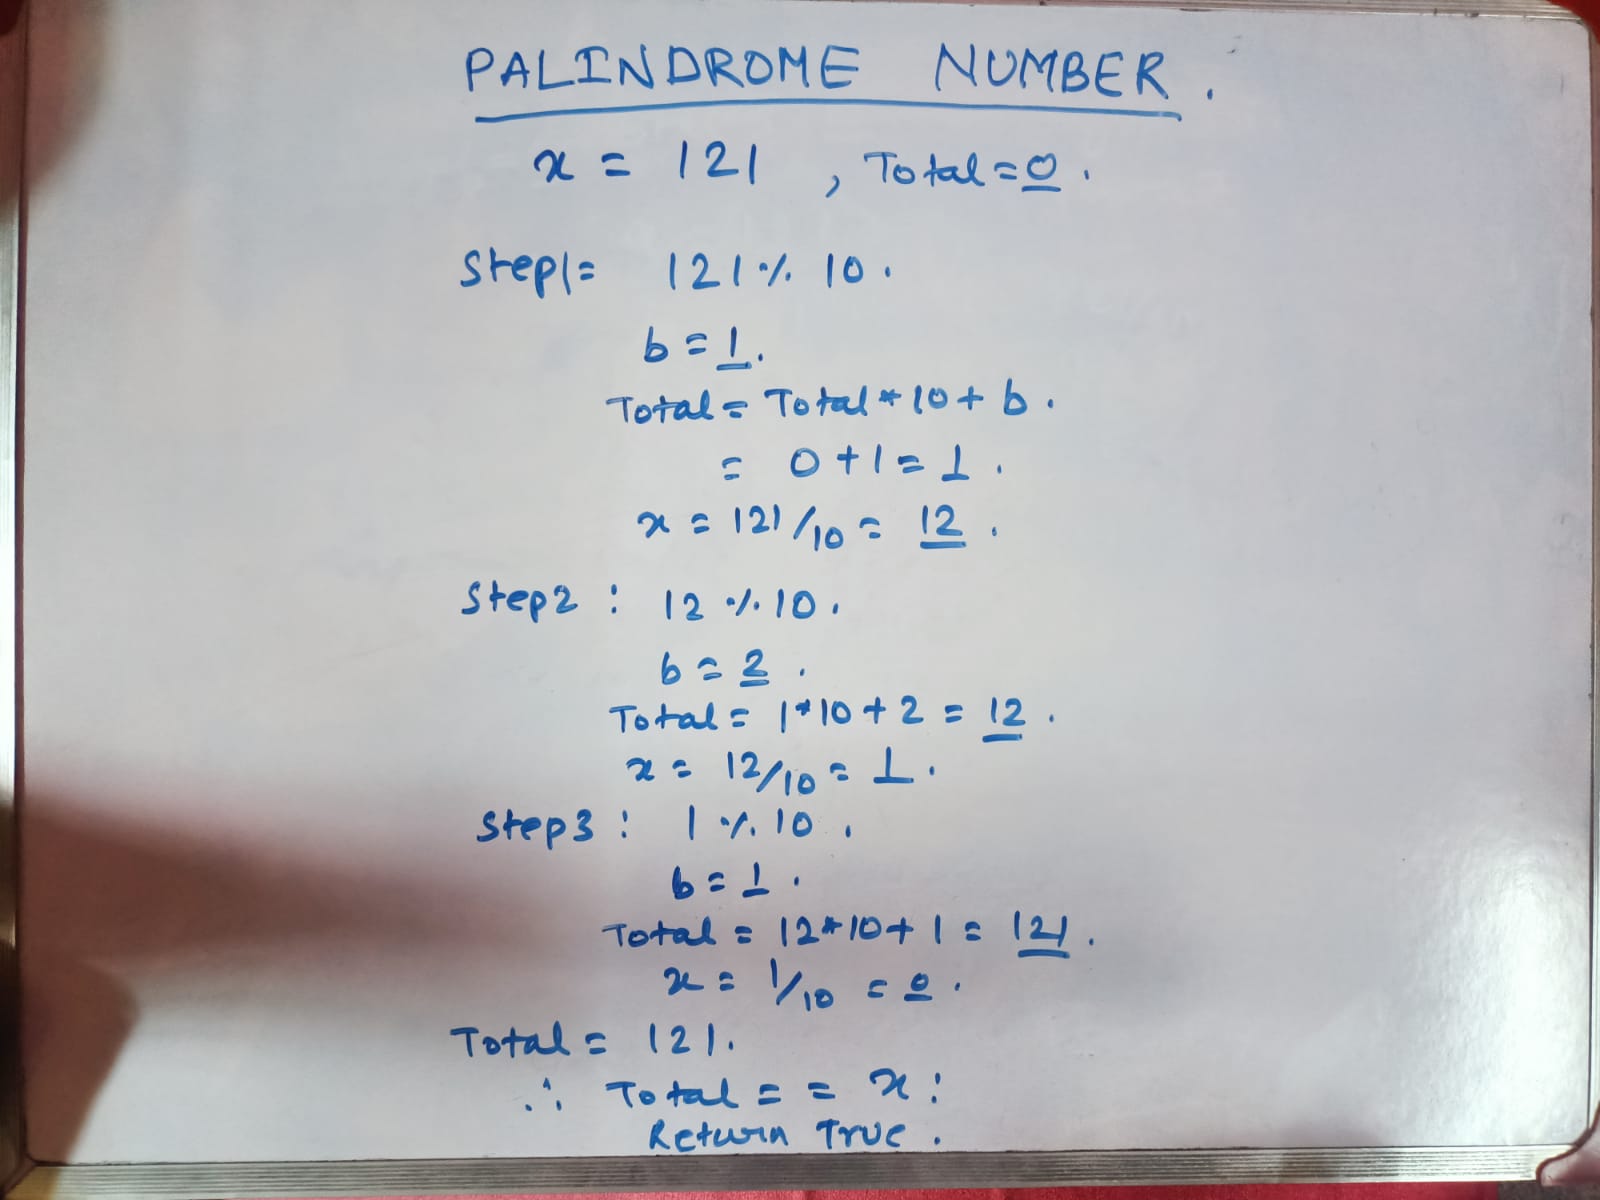 PALINDROME NUMBER.
x = 121 , Total = 0.
Step1= 121 % 10.
b = 1.
Total = Total * 10 + b.
= 0 + 1 = 1.
x = 121/10 = 12.
Step2 : 12 % 10.
b = 2.
Total = 1*10 + 2 = 12.
x = 12/10 = 1.
Step3 : 1 % 10.
b = 1.
Total = 12*10 + 1 = 121.
x = 1/10 = 0.
Total = 121.
∴ Total = = x :
Return True.